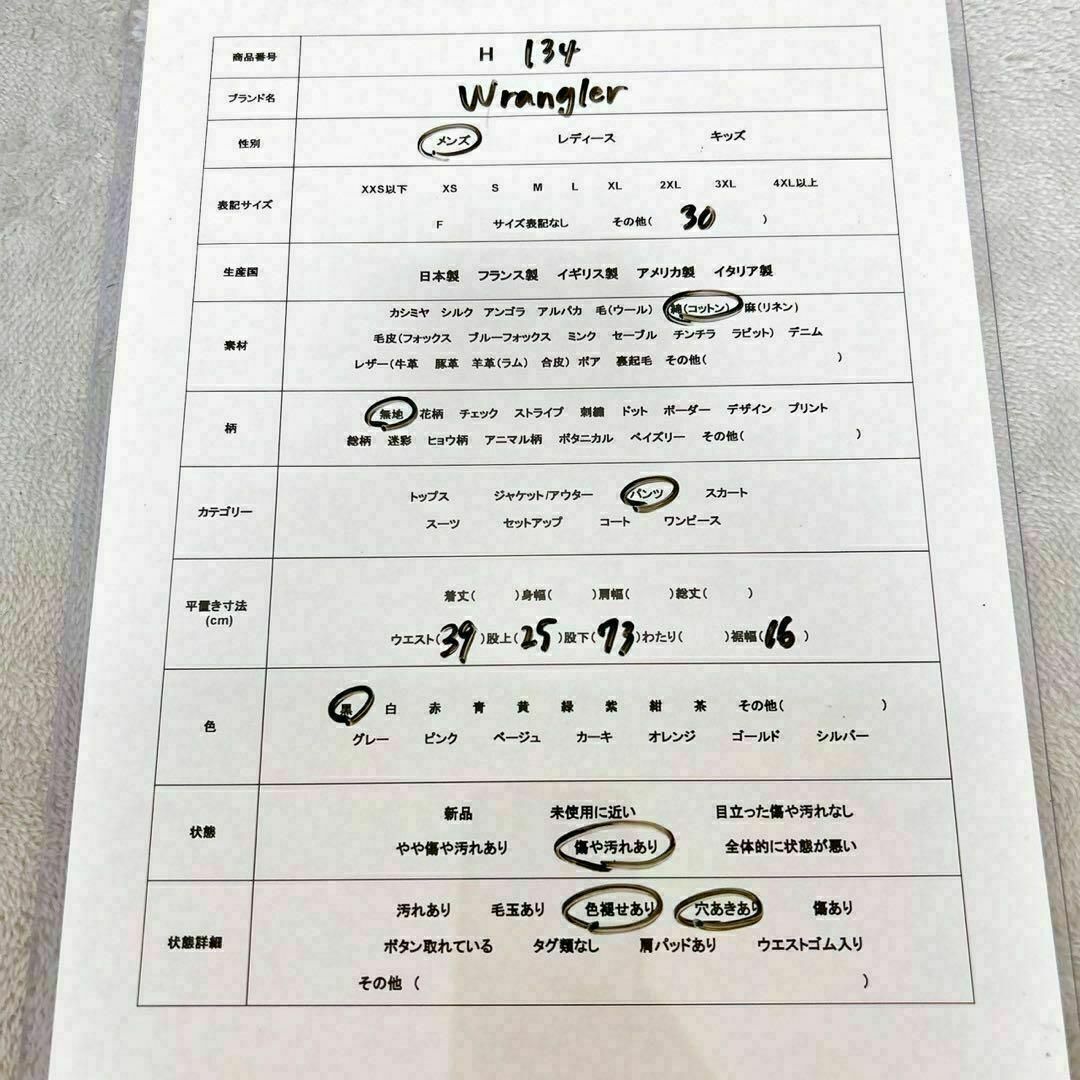 商品番号 H 134
ブランド名 Wrangler
性別 メンズ レディース キッズ
表記サイズ
XXS以下 XS S M L XL 2XL 3XL 4XL以上
F サイズ表記なし その他( 30 )
生産国 日本製 フランス製 イギリス製 アメリカ製 イタリア製
素材
カシミヤ シルク アンゴラ アルパカ 毛(ウール) 綿(コットン) 麻(リネン)
毛皮(フォックス ブルーフォックス ミンク セーブル チンチラ ラビット) デニム
レザー(牛革 豚革 羊革(ラム) 合皮) ボア 裏起毛 その他( )
柄
無地 花柄 チェック ストライプ 刺繍 ドット ボーダー デザイン プリント
総柄 迷彩 ヒョウ柄 アニマル柄 ボタニカル ペイズリー その他( )
カテゴリー
トップス ジャケット/アウター パンツ スカート
スーツ セットアップ コート ワンピース
平置き寸法
(cm)
着丈( )身幅( )肩幅( )総丈( )
ウエスト(39)股上(25)股下(73)わたり( )裾幅(16)
色
黒 白 赤 青 黄 緑 紫 紺 茶 その他( )
グレー ピンク ベージュ カーキ オレンジ ゴールド シルバー
状態
新品 未使用に近い 目立った傷や汚れなし
やや傷や汚れあり 傷や汚れあり 全体的に状態が悪い
状態詳細
汚れあり 毛玉あり 色褪せあり 穴あきあり 傷あり
ボタン取れている タグ類なし 肩パッドあり ウエストゴム入り
その他 ( )